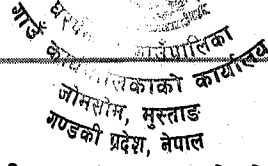 घरप... गाउँपालिका
गाउँ कार्यपालिकाको कार्यालय
जोमसोम, मुस्ताङ
गण्डकी प्रदेश, नेपाल